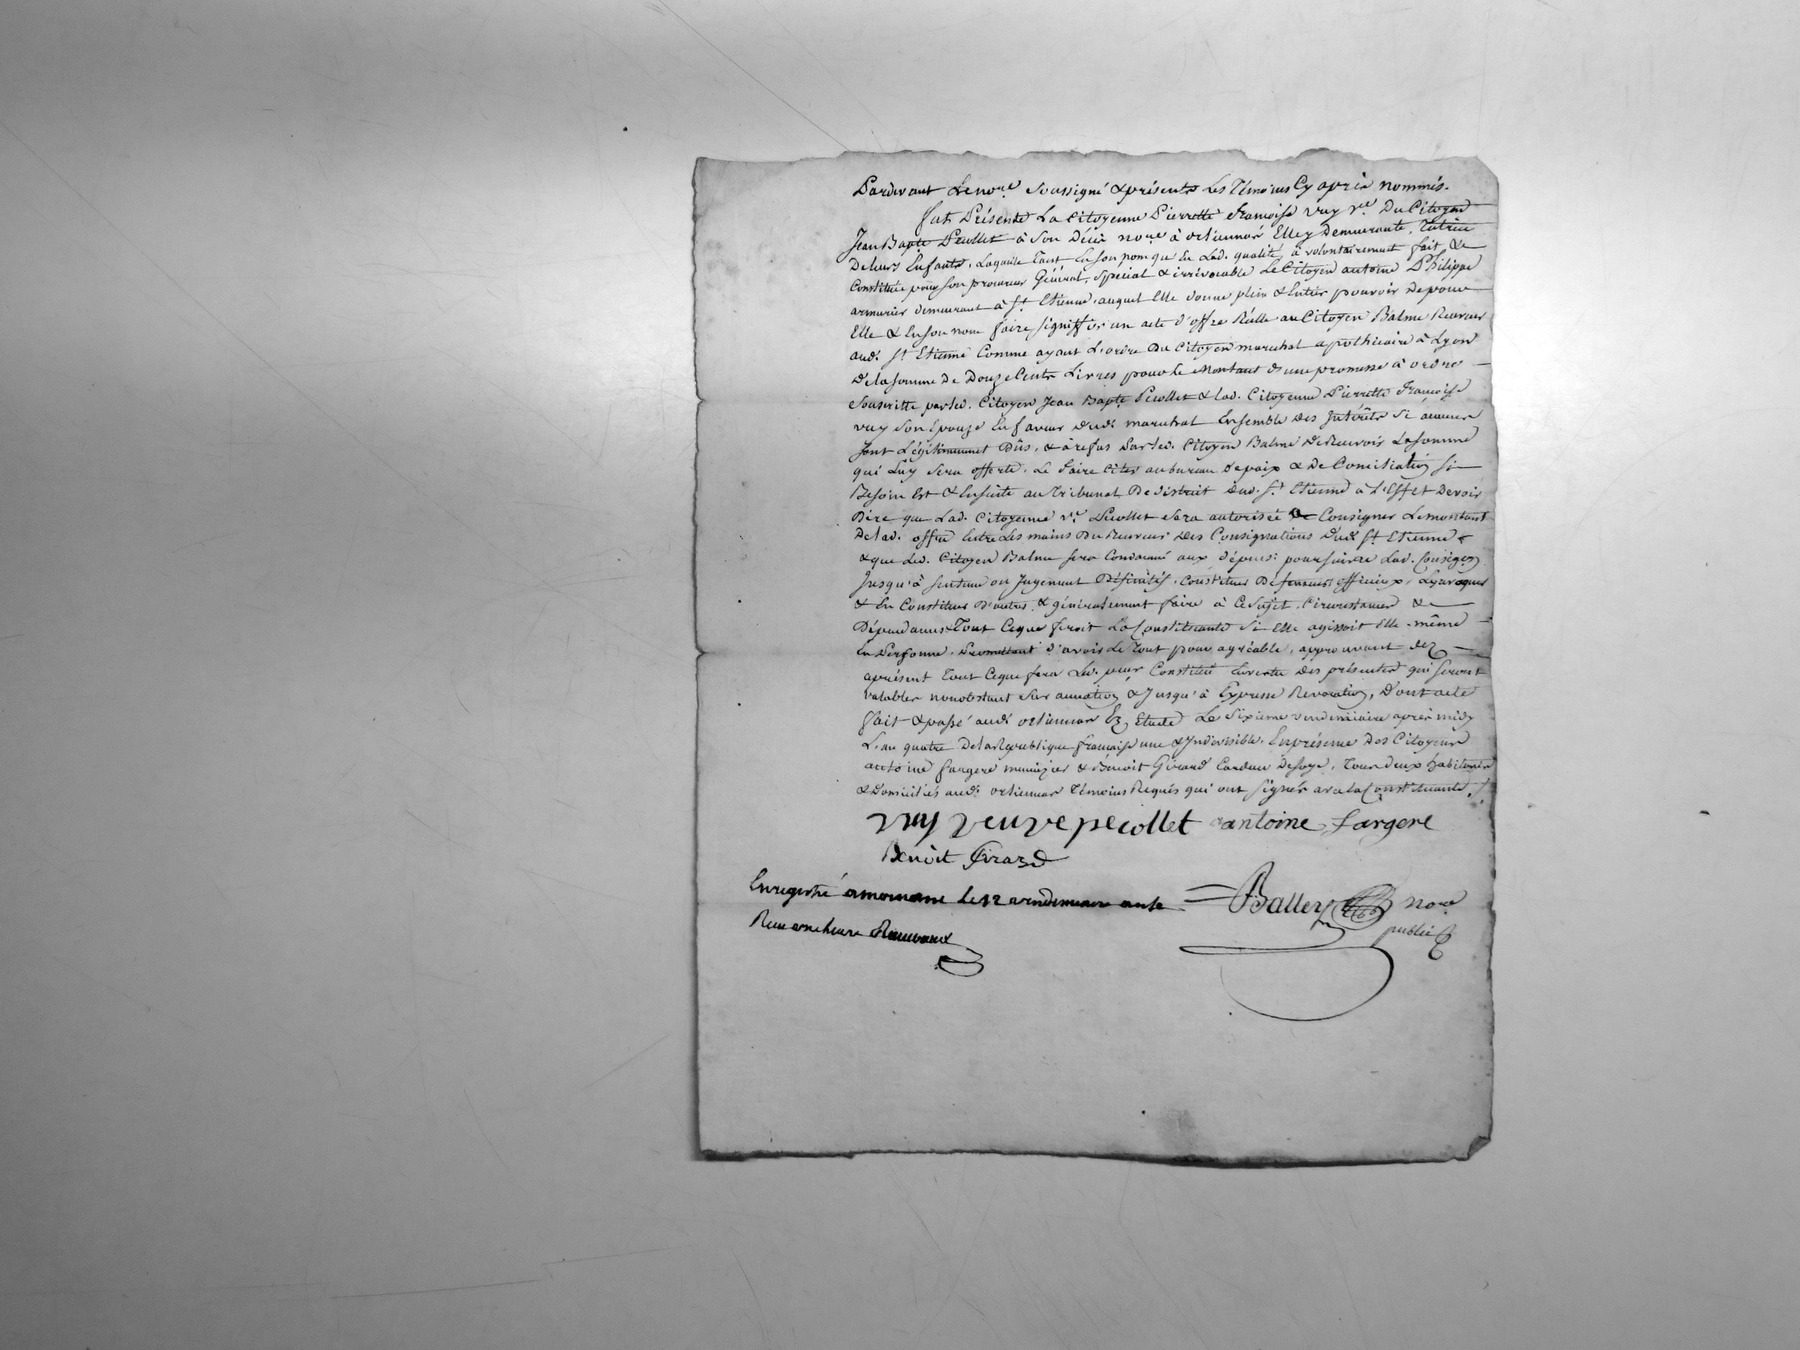 Pardevant Le no.re soussigné & présents Les Témoins Cy après nommés.
fut Présente La Citoyenne Pierrette françoise vuy v.e Du Citoyen
Jean Bapte Pecollet à son Décès no.re à orliennas Elle y Demeurante, Tutrice
De leurs Enfants, Laquelle Tant En son nom qu'En Lad. qualité, à volontairement fait &
Constitué pour son procureur Général, Special & irrévocable Le Citoyen antoine Philippe
armurier demeurant à St. Etienne, auquel Elle donne plein & Entier pouvoir De pour
Elle & En son nom faire signiffier un acte d'offre Réelle au Citoyen Balme Receveur
aud. St. Etienne Comme ayant L'ordre Du Citoyen marechal apothicaire à Lyon
De la somme De Douze Cents Livres pour Le Montant d'une promesse à ordre
Souscritte par led. Citoyen Jean Bapte Pecollet & lad. Citoyenne Pierrette françoise
vuy son Epouze En faveur dud. marechal Ensemble Des Intérêts Si aucuns
sont Légitimement Dûs, & à refus Par led. Citoyen Balme De Recevoir La somme
qui Luy sera offerte, Le faire Citer au bureau De paix & De Conciliation Si
Besoin Est & Ensuite au Tribunal De district dud. St. Etienne à L'Effet De voir
Dire que Lad. Citoyenne v.e Pecollet sera autorisée à Consigner Le montant
De lad. offre Entre Les mains Du Receveur Des Consignations Dud. St. Etienne
& que Led. Citoyen Balme sera Condamné aux dépens: poursuivre Lad. Consign.on
Jusqu'à sentence ou Jugement Définitif, Constituer Défenseurs officieux, Les revoquer
& En Constituer D'autres, & généralement faire à Ce Sujet, Circonstances &
Dépendances Tout Ceque feroit La Constituante Si Elle agissoit Elle-même
En Personne, Promettant d'avoir Le Tout pour agréable, approuvant dez
aprésent Tout Ceque fera Led. p.eur Constitué En vertu Des présentes qui seront
valables nonobstant Sur annation & Jusqu'à Expresse Revocation, D'ont acte
fait & passé aud. orliennas Ez Etude Le Sixieme vendemiaire après midy
L'an quatre De la Republique française une & Indivisible. En présence Des Citoyens
antoine fargere menuizier & Benoit Girard Cardeur De soye, Tous deux habitants
& Domiciliés aud. orliennas Témoins Requis qui ont signés avec La Constituante.
vuy veuve pecollet antoine fargere
Benoit Girard
Enregistré a mornant Le 12 vendemiaire an 4e
Ballet no.re
public